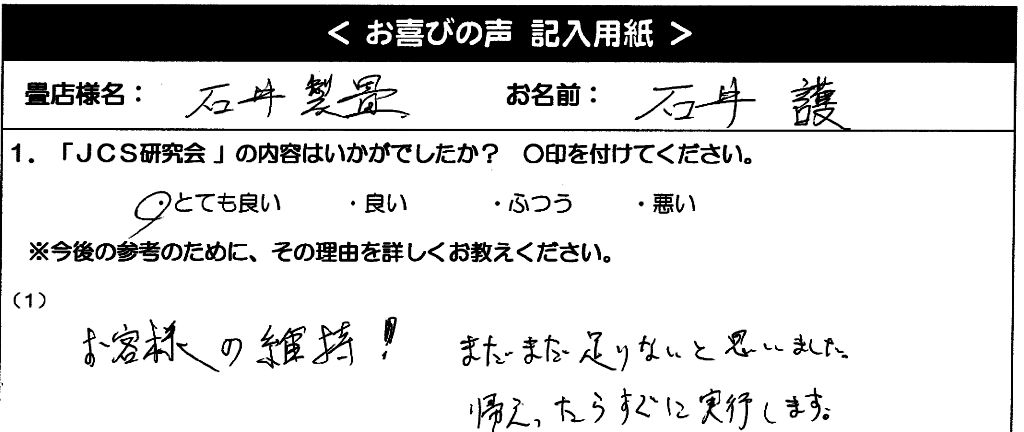 < お喜びの声 記入用紙 >
畳店様名： 石井製畳 お名前： 石井 護
1．「JCS研究会」の内容はいかがでしたか？ ○印を付けてください。
・とても良い ・良い ・ふつう ・悪い
※今後の参考のために、その理由を詳しくお教えください。
(1)
お客様の維持！ まだまだ足りないと思いました。
帰えったらすぐに実行します。